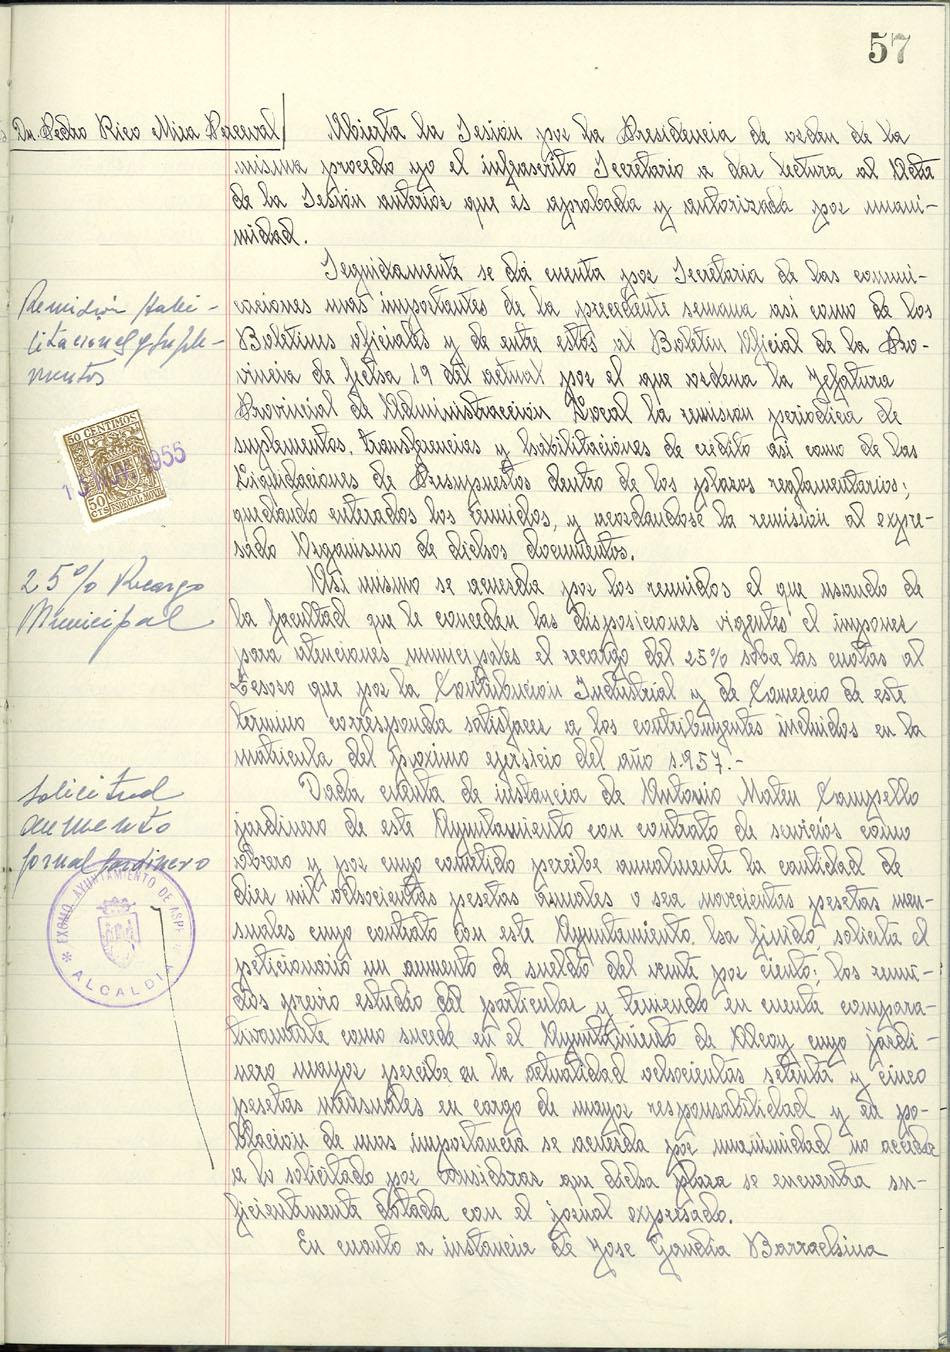 57
Dn. Pedro Rico Mira Perceval
Abierta la Sesión por la Presidencia de orden de la
misma procedo yo el infrascrito Secretario a dar lectura al Acta
de la Sesión anterior que es aprobada y autorizada por unani-
midad.
Seguidamente se dá cuenta por Secretaria de las comuni-
caciones mas importantes de la precedente semana asi como de los
Boletines oficiales y de entre estos al Boletin Oficial de la Pro-
vincia de fecha 19 del actual por el que ordena la Jefatura
Provincial de Administraccion Local la remision periodica de
suplementos, transferencias y habilitaciones de credito asi como de las
Liquidaciones de Presupuestos dentro de los plazos reglamentarios;
quedando enterados los reunidos, y acordandose la remision al expre-
sado Organismo de dichos documentos.
Asi mismo se acuerda por los reunidos el que usando de
la facultad que le conceden las disposiciones vigentes el imponer
para atenciones municipales el recargo del 25% sobre las cuotas al
Tesoro que por la Contribucion Industrial y de Comercio de este
termino corresponda satisfacer a los contribuyentes incluidos en la
matricula del proximo ejercicio del año 1.957.-
Dada cuenta de instancia de Antonio Mateu Campello
jardinero de este Ayuntamiento con contrato de servicios como
obrero y por cuyo cometido percibe anualmente la cantidad de
diez mil ochocientas pesetas anuales o sea novecientas pesetas men-
suales cuyo contrato con este Ayuntamiento ha finido, solicita el
peticionario un aumento de sueldo del veinte por ciento; los reuni-
dos previo estudio del particular y teniendo en cuenta compara-
tivamente como sucede en el Ayuntamiento de Alcoy cuyo jardi-
nero mayor percibe en la actualidad ochocientas setenta y cinco
pesetas mensuales en cargo de mayor responsabilidad y en po-
blacion de mas importancia se acuerda por unanimidad no acceder
a lo solicitado por considerar que dicha plaza se encuentra su-
ficientemente dotada con el jornal expresado.
En cuanto a instancia de Jose Gandia Barrachina
Remision habi-
litaciones y suple-
mentos
50 CENTIMOS
1955
50
CTS
ESPECIAL MOVIL
25% Recargo
Municipal
Solicitud
aumento
jornal Jardinero
EXCMO. AYUNTAMIENTO DE ASPE
* ALCALDIA *